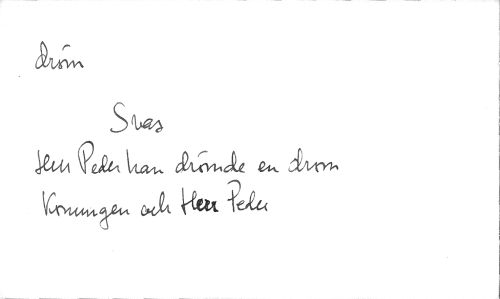 dröm
Svas
Herr Peder han drömde en dröm
Konungen och Herr Peder